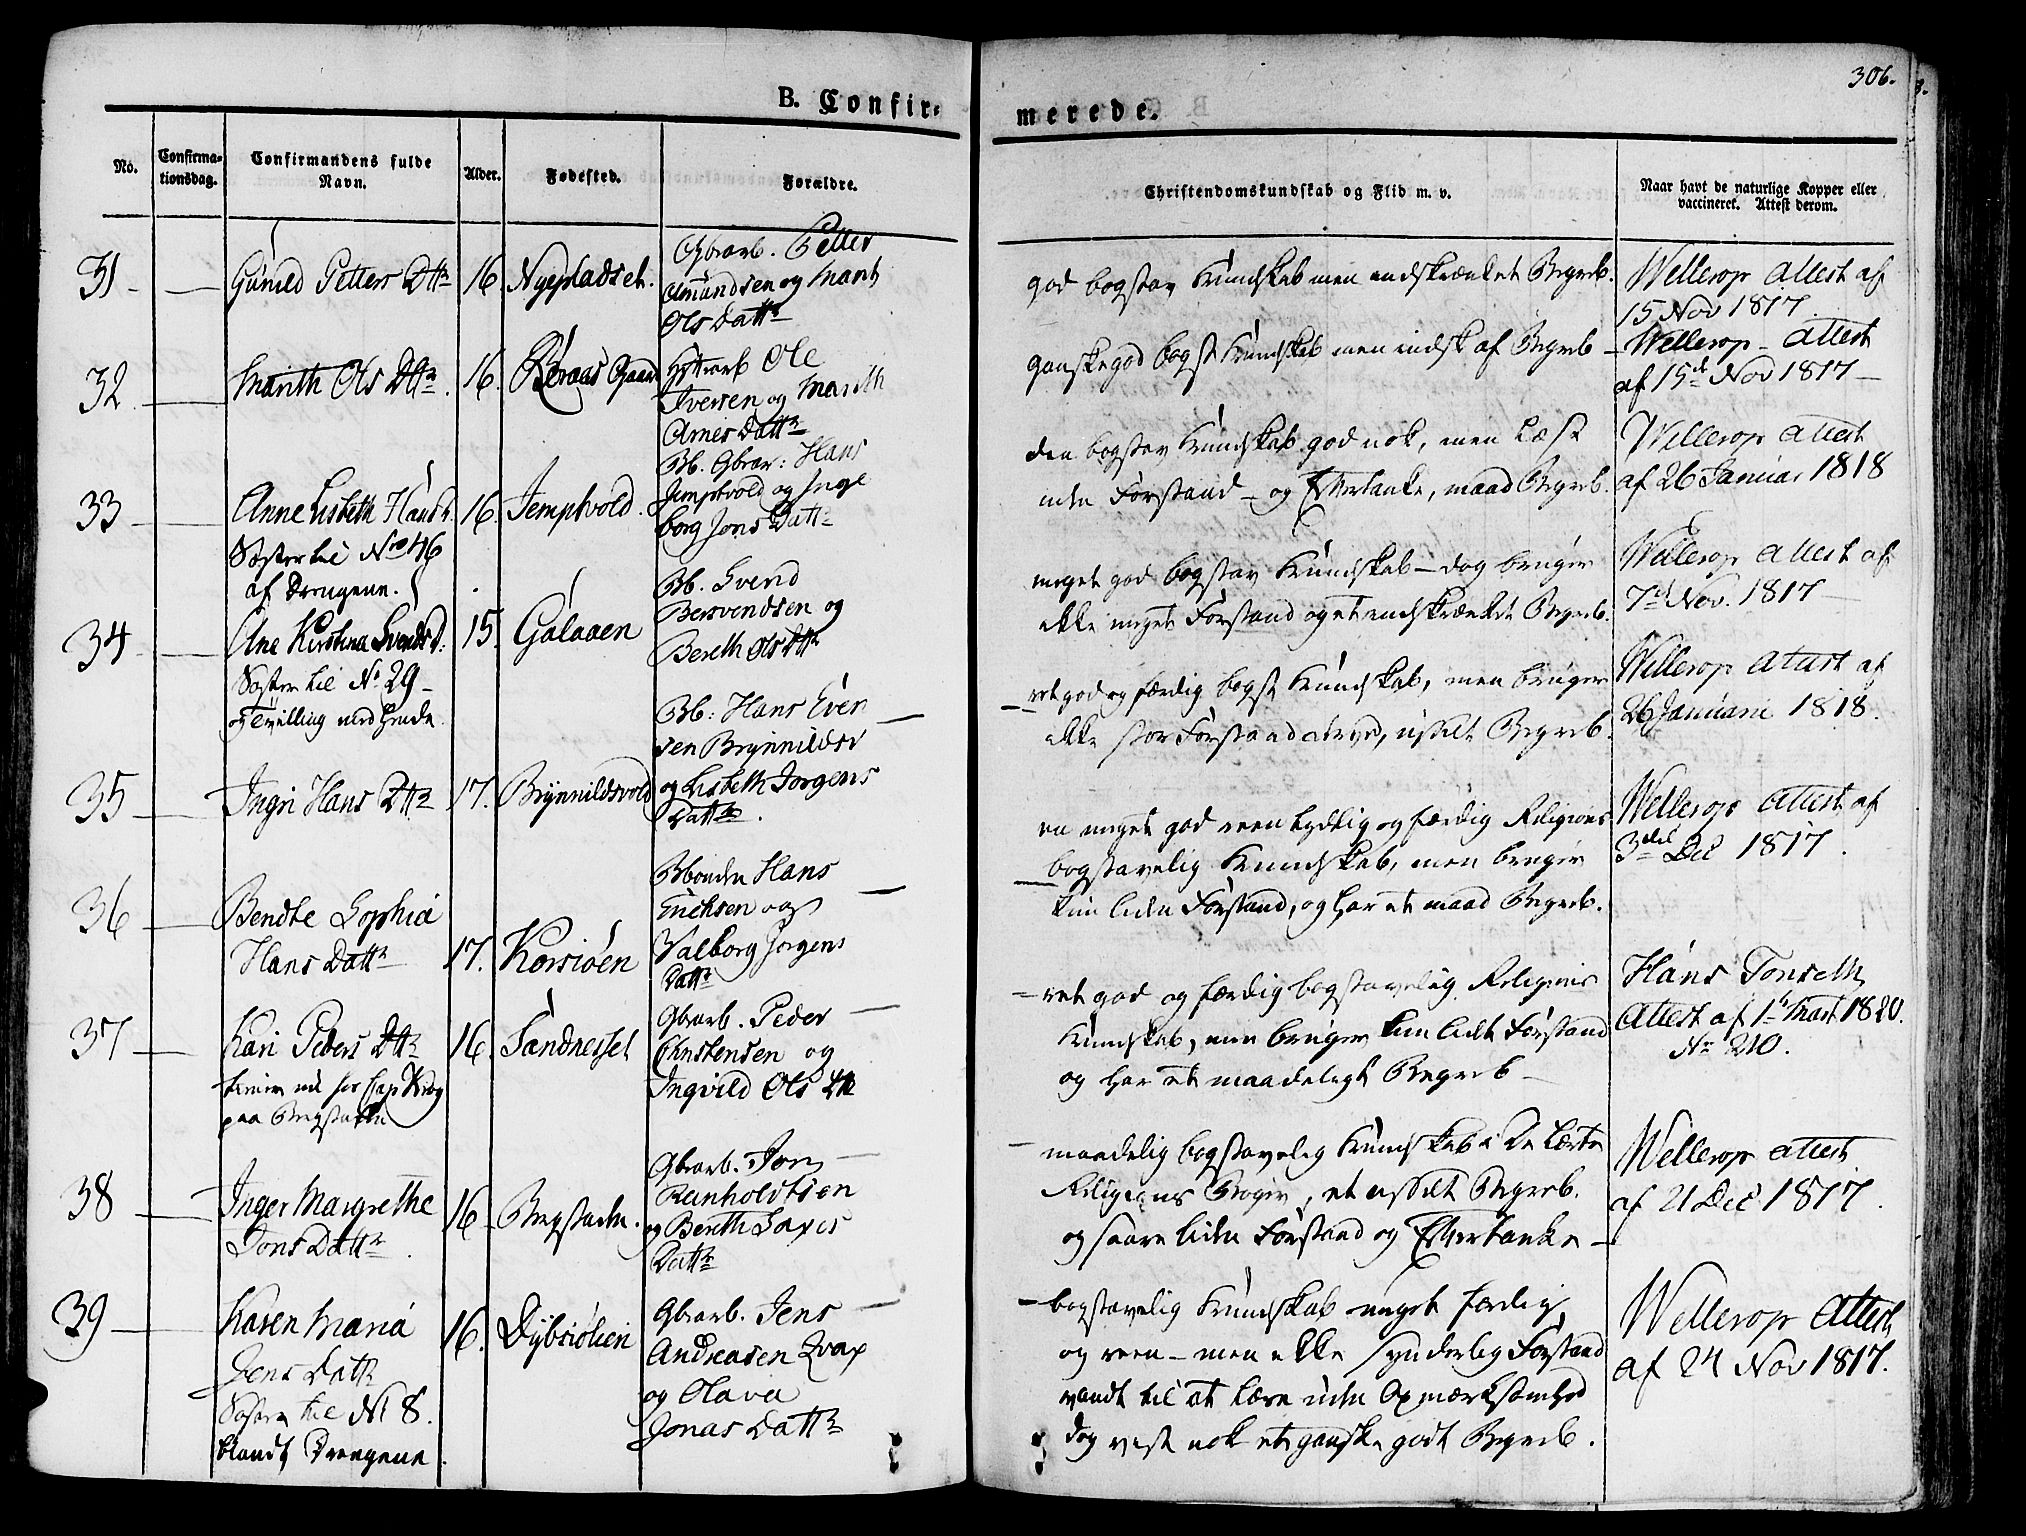 306.
B. Confir-
merede.
No.
Confirma-
tionsdag.
Confirmandens fulde
Navn.
Alder.
Fødested.
Forældre.
Christendomskundskab og Flid m. v.
Naar havt de naturlige Kopper eller
vaccineret. Attest derom.
31 Gunild Petters Dttr 16. Nyepladset.
Gbrarb. Petter
Amundsen og Marit
Ols Dattr
god bogstav Kundskab men indskrænket Begreb.
Wellerop Attest af
15 Nov 1817.
32. Marith Ols Dttr. 16. Røraas Gaard
Hyttarb Ole
Iversen og Marith
Arnes Dattr
ganske god bogst Kundskab men indsk af Begreb
Wellerop Attest
af 15de Nov 1817
33 Anne Lisbeth Hansd. 16. Jemptvold.
Søster til No 46
af Drengene.
Bb. Gbrar: Hans
Jemptvold og Inge
borg Jons Dattr
den bogstav Kundskab god nok, men Læst
uden Forstand og Eftertanke, maad Begreb.
Wellerop Attest
af 26 Januar 1818
34 Ane Kirstina Svends D: 15. Galaaen
Søster til No 29
og Tvilling med hende.
Bb. Svend
Bersvendsen og
Bereth Ols Dttr
meget god bogstav Kundskab - dog bruger
ikke meget Forstand og et indskrænket Begreb.
Wellerop Attest af
7de Nov. 1817
35 Ingri Hans Dttr 17. Brynnildsvold
Bb: Hans Even
sen Brynnildsv
og Lisbeth Jorgens
Dattr.
ret god og færdig bogst Kundskab, men bruger
ikke stor Forstand derved, usselt Begreb.
Wellerop Attest af
26 Januarii 1818.
36 Bendte Sophia
Hans Dattr 17. Korsiøen
Bonden Hans
Erichsen og
Valborg Jorgens
Dattr
en meget god reen tydelig og færdig Religions
bogstavelig Kundskab, men bruger
kun liden Forstand, og har et maad Begreb.
Wellerop Attest af
3die Dec 1817.
37 Kari Peders Dttr 16. Sandnesset
tiener nu hos Cap Krog
paa Bergstaden
Gbrarb. Peder
Christensen og
Ingvild Ols Dttr
ret god og færdig bogstavelig Religions
Kundskab, men bruger kun lidt Forstand
og har et maadeligt Begreb
Hans Tonseth
Attest af 1te Mart 1820.
No 210.
38 Inger Margrethe
Jons Dattr. 16 Bergstaden.
Gbrarb. Jon
Reinholdtsen
og Bereth Larses
Dattr
maadelig bogstavelig Kundskab i De Lærte
Religions Bøger, et usselt Begreb.
og saare liden Forstand og Eftertanke
Wellerop Attest
af 21 Dec 1817.
39 Karen Maria
Jens Dattr 16. Dybsiølien
Søster til No 8.
blandt Drengene.
Gbrarb. Jens
Andreasen Kvap
og Olava
Jonas Dattr
bogstavelig Kundskab meget færdig
og reen - men ikke synderlig Forstand
vandt til at læse uden Opmærksomhed
dog vist nok et ganske godt Begreb.
Wellerop Attest
af 24 Nov 1817.